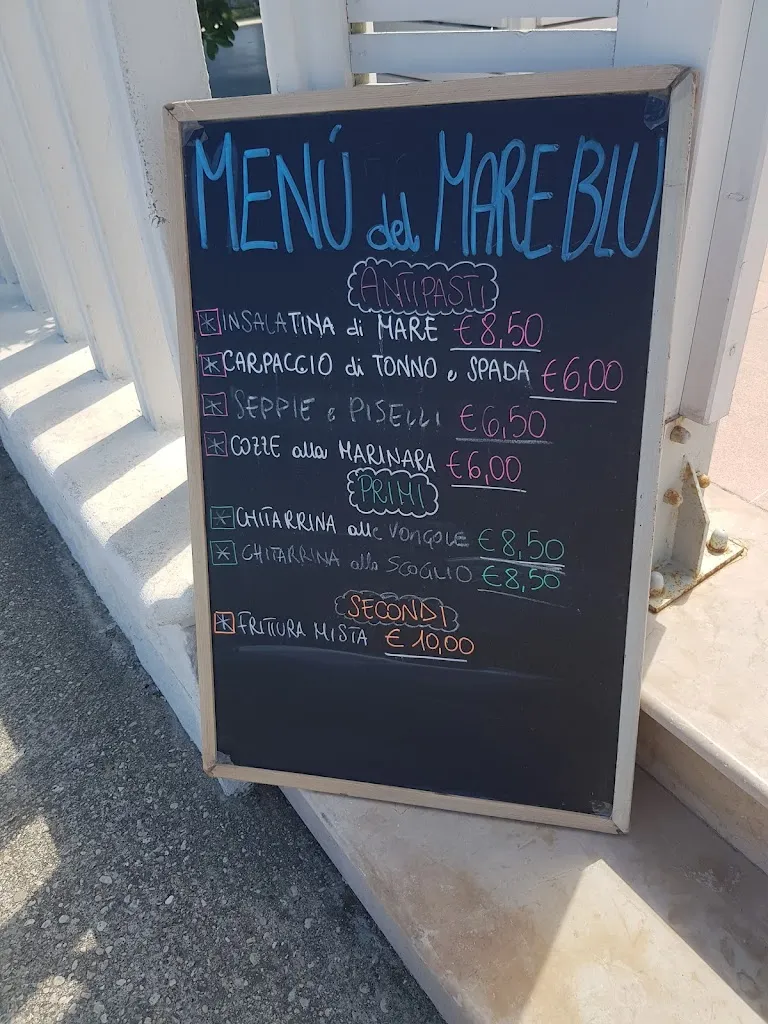 MENÚ del MARE BLU
ANTIPASTI
INSALATINA di MARE €8,50
CARPACCIO di TONNO e SPADA €6,00
SEPPIE e PISELLI €6,50
COZZE alla MARINARA €6,00
PRIMI
CHITARRINA alle VONGOLE €8,50
CHITARRINA allo SCOGLIO €8,50
SECONDI
FRITTURA MISTA € 10,00